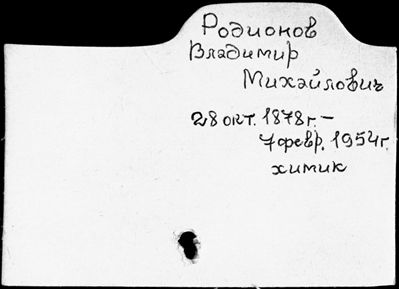 Родионов
Владимир
Михайлович
28 окт. 1878 г. –
7 февр. 1954 г.
химик